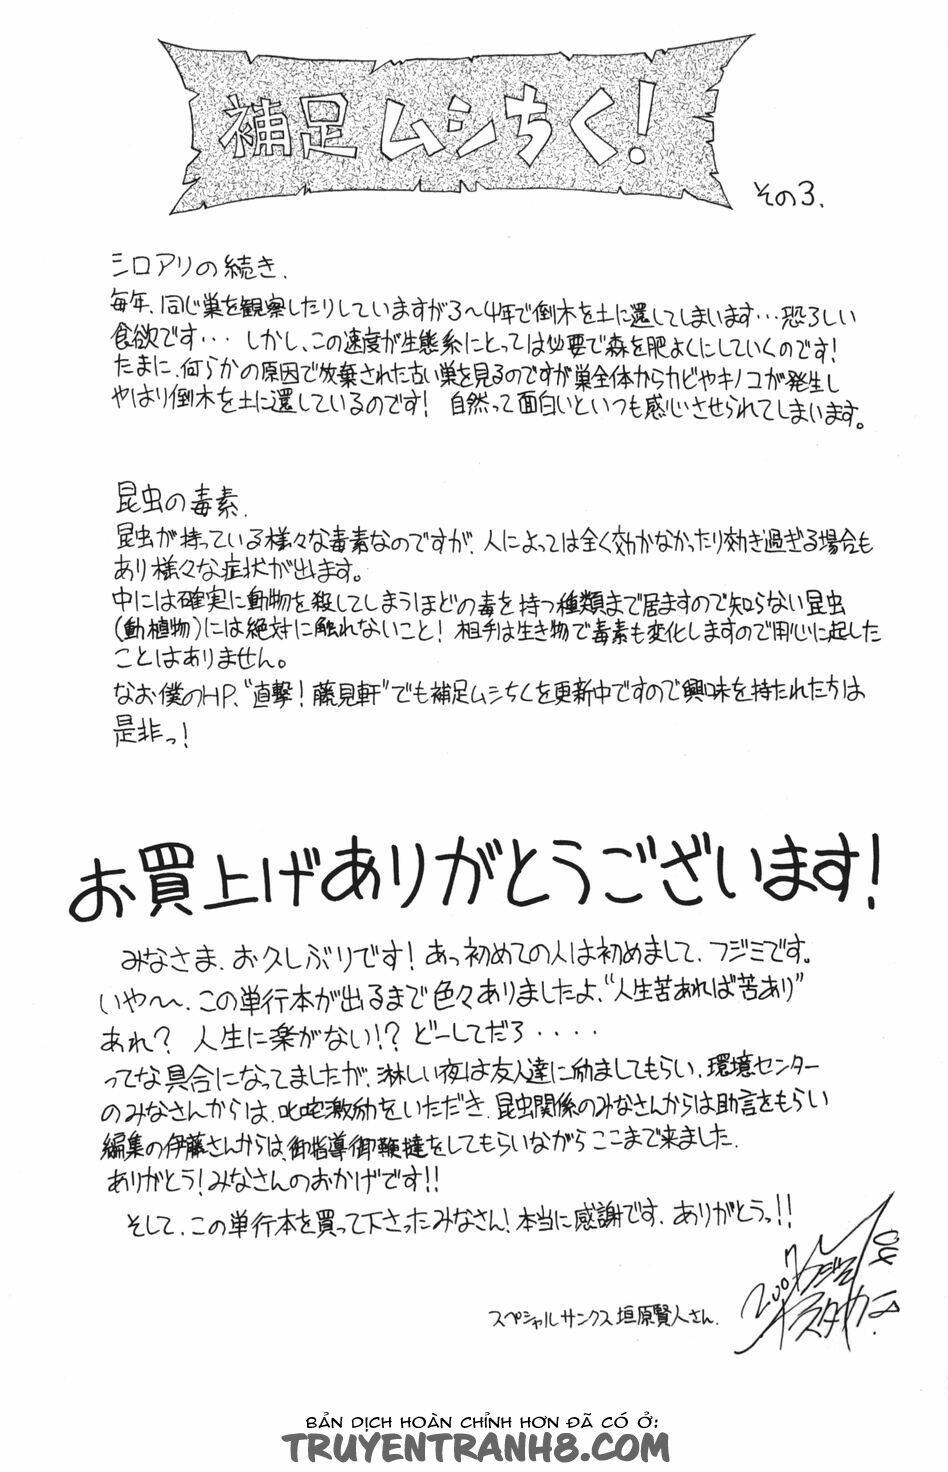 補足 ムシちく!
その3.
シロアリの続き.
毎年、同じ巣を観察したりしていますが3〜4年で倒木を土に還してしまいます…恐ろしい
食欲です… しかし、この速度が生態系にとっては必要で森を肥よくにしていくのです!
たまに、何らかの原因で放棄された古い巣を見るのですが巣全体からカビやキノコが発生し
やはり倒木を土に還しているのです! 自然って面白いといつも感心させられてしまいます。
昆虫の毒素.
昆虫が持っている様々な毒素なのですが、人によっては全く効かなかったり効き過ぎる場合も
あり様々な症状が出ます。
中には確実に動物を殺してしまうほどの毒を持つ種類まで居ますので知らない昆虫
(動植物)には絶対に触れないこと! 相手は生き物で毒素も変化しますので用心に越した
ことはありません。
なお僕のHP、"直撃!藤見軒"でも補足ムシちくを更新中ですので興味を持たれたちは
是非っ!
お買上げありがとうございます!
みなさま、お久しぶりです! あっ初めての人は初めまして、フジミです。
いや〜〜、この単行本が出るまで色々ありましたよ、"人生苦あれば苦あり"
あれ? 人生に楽がない!? どーしてだろ・・・・
ってな具合になってましたが、淋しい夜は友人達に励ましてもらい、環境センター
のみなさんからは、叱咤激励をいただき、昆虫関係のみなさんからは助言をもらい
編集の伊藤さんからは、御指導御鞭撻をしてもらいながらここまで来ました.
ありがとう!みなさんのおかげです!!
そして、この単行本を買って下さったみなさん!本当に感謝です、ありがとうっ!!
2007
スペシャルサンクス 垣原賢人さん.
BẢN DỊCH HOÀN CHỈNH HƠN ĐÃ CÓ Ở:
TRUYENTRANH8.COM